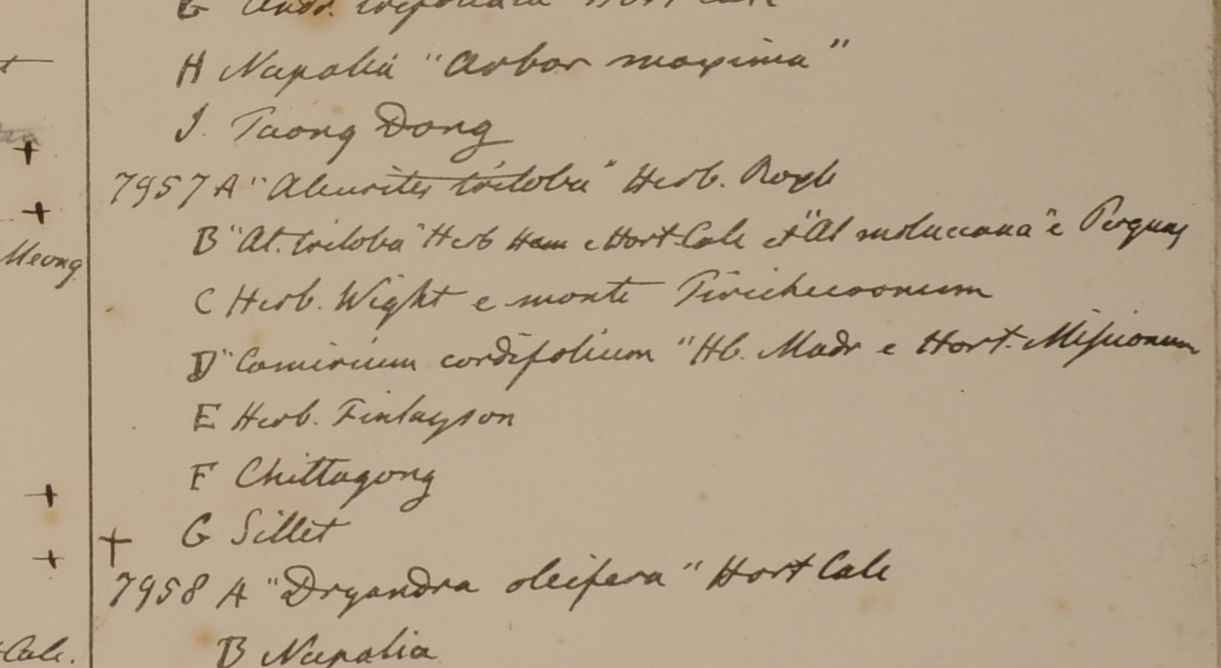 G Andr. trifoliata Hort Calc
H Napalia "Arbor maxima"
J. Taong Dong
7957 A "Aleurites triloba" Herb. Roxb
B "Al. triloba" Herb Ham e Hort Calc et "Al moluccana" e
C Herb. Wight e monte
D "Camirium cordifolium" Hb. Madr e Hort. Missionum
E Herb. Finlayson
F Chittagong
G Sillet
7958 A "Dryandra oleifera" Hort Calc
B Napalia
Meong
Calc.